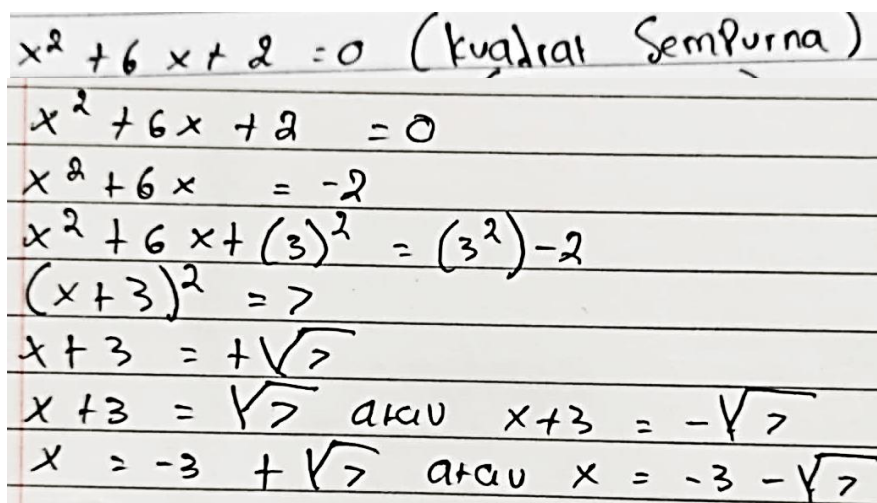 x² + 6x + 2 = 0 (kuadrat Sempurna)
x² + 6x + 2 = 0
x² + 6x = -2
x² + 6x + (3)² = (3²) - 2
(x + 3)² = 7
x + 3 = +√7
x + 3 = √7 atau x + 3 = -√7
x = -3 + √7 atau x = -3 - √7